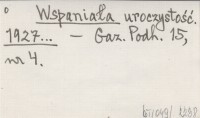 Wspaniała uroczystość.
1927... — Gaz. Podh. 15,
nr 4.